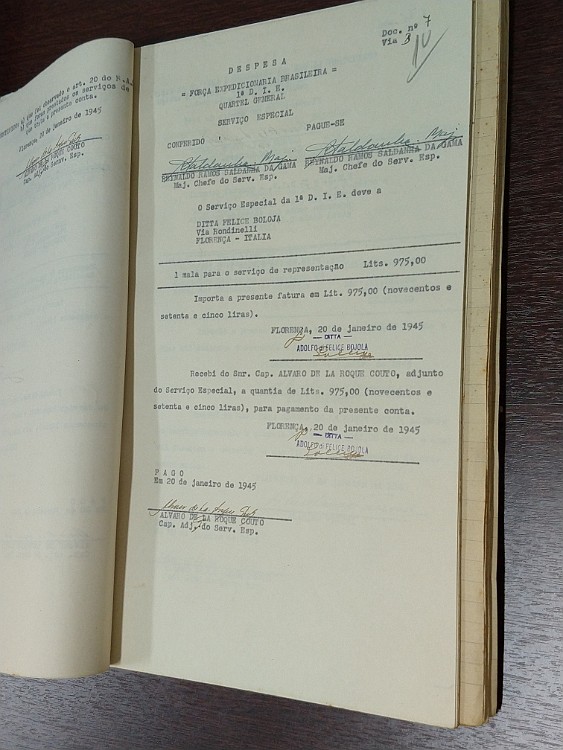 art. 20 do R.A.
os serviços de
presente conta.
Florença, 20 de janeiro de 1945
ROQUE COUTO
Cap. Adj. do Serv. Esp.
Doc. nº 7
Via 3
D E S P E S A
= FORÇA EXPEDICIONARIA BRASILEIRA =
1ª D. I. E.
QUARTEL GENERAL
SERVIÇO ESPECIAL
CONFERIDO PAGUE-SE
REYNALDO RAMOS SALDANHA DA GAMA REYNALDO RAMOS SALDANHA DA GAMA
Maj. Chefe do Serv. Esp. Maj. Chefe do Serv. Esp.
O Serviço Especial da 1ª D. I. E. deve a
DITTA FELICE BOLOJA
Via Rondinelli
FLORENÇA - ITALIA
1 mala para o serviço de representação Lits. 975,00
Importa a presente fatura em Lit. 975,00 (novecentos e
setenta e cinco liras).
FLORENÇA, 20 de janeiro de 1945
— DITTA —
ADOLFO di FELICE BOJOLA
Recebi do Snr. Cap. ALVARO DE LA ROQUE COUTO, adjunto
do Serviço Especial, a quantia de Lits. 975,00 (novecentos e
setenta e cinco liras), para pagamento da presente conta.
FLORENÇA, 20 de janeiro de 1945
— DITTA —
ADOLFO di FELICE BOJOLA
P A G O
Em 20 de janeiro de 1945
ALVARO DE LA ROQUE COUTO
Cap. Adj. do Serv. Esp.